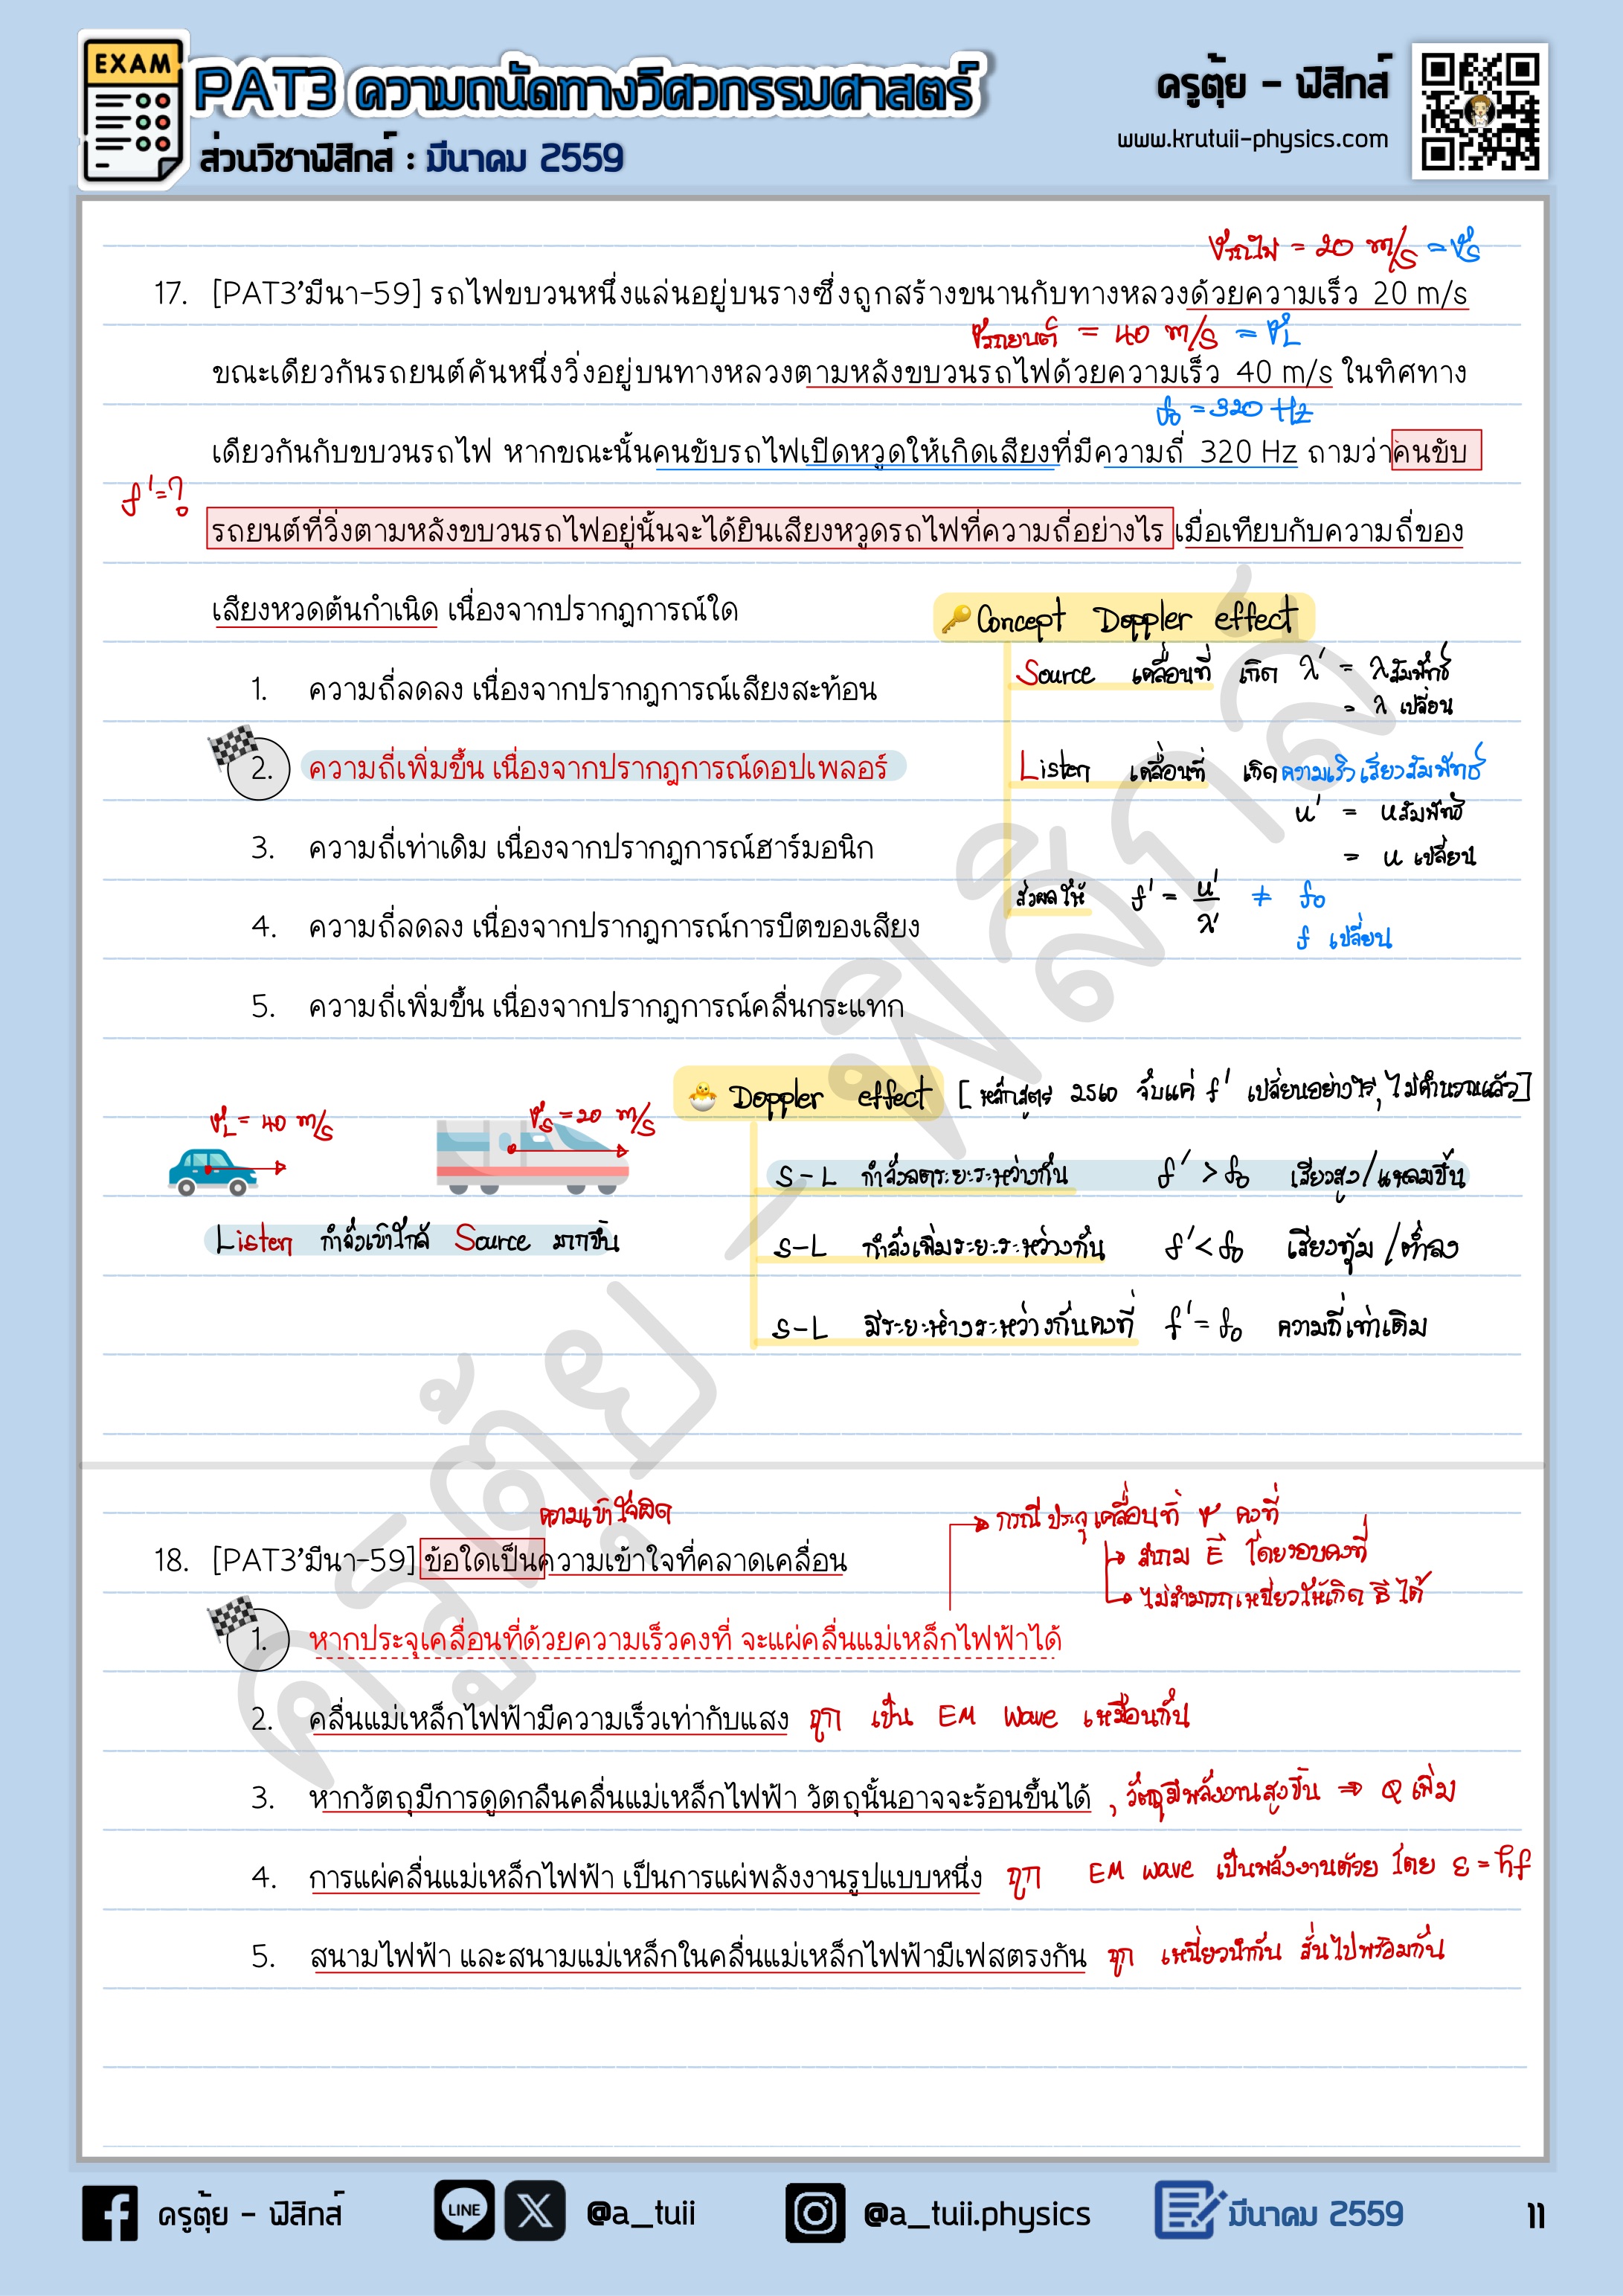 EXAM
PAT3 ความถนัดทางวิศวกรรมศาสตร์
ส่วนวิชาฟิสิกส์ : มีนาคม 2559
ครูตุ้ย - ฟิสิกส์
www.krutuii-physics.com
vรถไฟ = 20 m/s = vS
17. [PAT3'มีนา-59] รถไฟขบวนหนึ่งแล่นอยู่บนรางซึ่งถูกสร้างขนานกับทางหลวงด้วยความเร็ว 20 m/s
vรถยนต์ = 40 m/s = vL
ขณะเดียวกันรถยนต์คันหนึ่งวิ่งอยู่บนทางหลวงตามหลังขบวนรถไฟด้วยความเร็ว 40 m/s ในทิศทาง
f0 = 320 Hz
เดียวกันกับขบวนรถไฟ หากขณะนั้นคนขับรถไฟเปิดหวูดให้เกิดเสียงที่มีความถี่ 320 Hz ถามว่าคนขับ
f' = ?
รถยนต์ที่วิ่งตามหลังขบวนรถไฟอยู่นั้นจะได้ยินเสียงหวูดรถไฟที่ความถี่อย่างไร เมื่อเทียบกับความถี่ของ
เสียงหวดต้นกำเนิด เนื่องจากปรากฎการณ์ใด
1. ความถี่ลดลง เนื่องจากปรากฎการณ์เสียงสะท้อน
2. ความถี่เพิ่มขึ้น เนื่องจากปรากฎการณ์ดอปเพลอร์
3. ความถี่เท่าเดิม เนื่องจากปรากฎการณ์ฮาร์มอนิก
4. ความถี่ลดลง เนื่องจากปรากฎการณ์การบีตของเสียง
5. ความถี่เพิ่มขึ้น เนื่องจากปรากฎการณ์คลื่นกระแทก
Concept Doppler effect
Source เคลื่อนที่ เกิด λ' = λสัมพัทธ์
= λ เปลี่ยน
Listen เคลื่อนที่ เกิดความเร็วเสียงสัมพัทธ์
u' = uสัมพัทธ์
= u เปลี่ยน
ส่งผลให้ f' = u'/λ' ≠ f0
f เปลี่ยน
Doppler effect [หลักสูตร 2560 จับแค่ f' เปลี่ยนอย่างไร, ไม่คำนวณแล้ว]
vL = 40 m/s
vS = 20 m/s
Listen กำลังเข้าใกล้ Source มากขึ้น
S-L กำลังลดระยะระหว่างกัน f' > f0 เสียงสูง/แหลมขึ้น
S-L กำลังเพิ่มระยะระหว่างกัน f' < f0 เสียงทุ้ม/ต่ำลง
S-L มีระยะห่างระหว่างกันคงที่ f' = f0 ความถี่เท่าเดิม
ครูตุ้ย - ฟิสิกส์
ความเข้าใจผิด
18. [PAT3'มีนา-59] ข้อใดเป็นความเข้าใจที่คลาดเคลื่อน
กรณี ประจุ เคลื่อนที่ v คงที่
สนาม E โดยรอบคงที่
ไม่สามารถเหนี่ยวให้เกิด B ได้
1. หากประจุเคลื่อนที่ด้วยความเร็วคงที่ จะแผ่คลื่นแม่เหล็กไฟฟ้าได้
2. คลื่นแม่เหล็กไฟฟ้ามีความเร็วเท่ากับแสง ถูก เป็น EM Wave เหมือนกัน
3. หากวัตถุมีการดูดกลืนคลื่นแม่เหล็กไฟฟ้า วัตถุนั้นอาจจะร้อนขึ้นได้ , วัตถุมีพลังงานสูงขึ้น ⇒ Q เพิ่ม
4. การแผ่คลื่นแม่เหล็กไฟฟ้า เป็นการแผ่พลังงานรูปแบบหนึ่ง ถูก EM wave เป็นพลังงานด้วย โดย ε = hf
5. สนามไฟฟ้า และสนามแม่เหล็กในคลื่นแม่เหล็กไฟฟ้ามีเฟสตรงกัน ถูก เหนี่ยวนำกัน สั่นไปพร้อมกัน
ครูตุ้ย - ฟิสิกส์ LINE @a_tuii @a_tuii.physics มีนาคม 2559 11